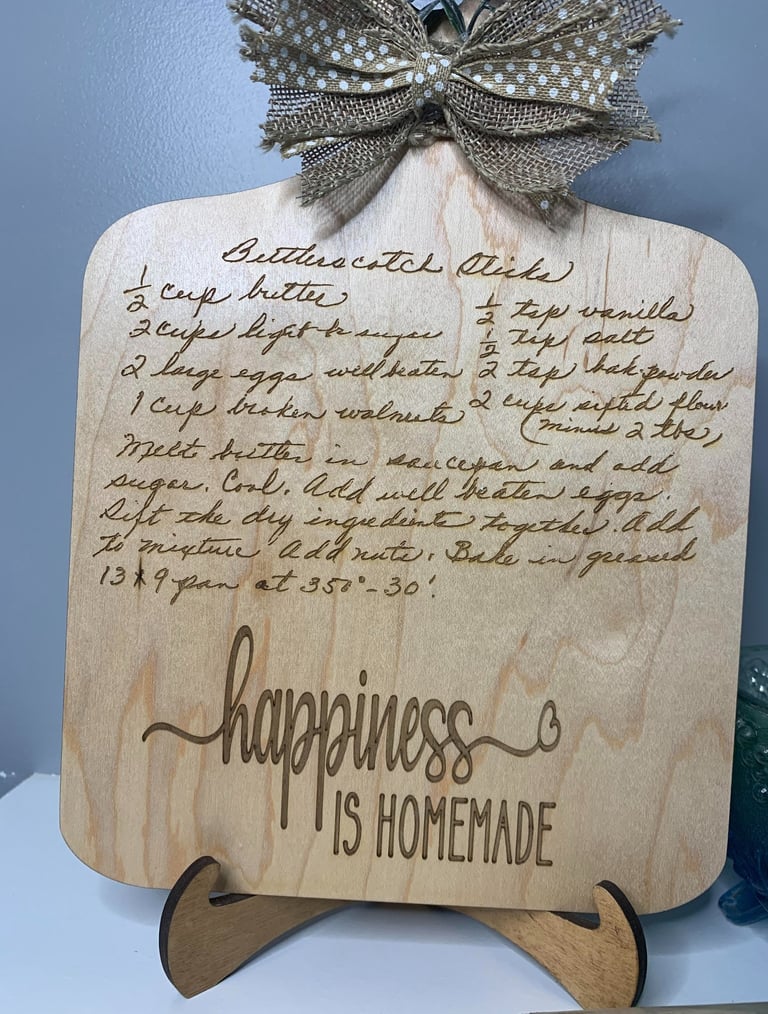 Butterscotch Sticks
1/2 cup butter
2 cups light br sugar
2 large eggs well beaten
1 cup broken walnuts
1/2 tsp vanilla
1/2 tsp salt
2 tsp bak. powder
2 cups sifted flour
(minus 2 tbs)
Melt butter in saucepan and add
sugar. Cool. Add well beaten eggs.
Sift the dry ingredients together. Add
to mixture Add nuts. Bake in greased
13x9 pan at 350° - 30'.
happiness
IS HOMEMADE